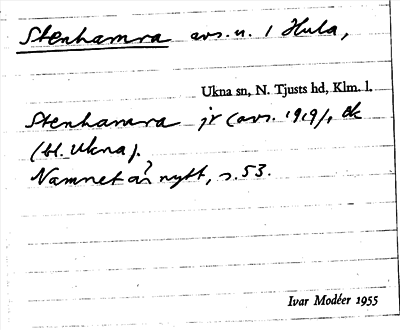 Stenhamra avs. u. 1 Hula,
Ukna sn, N. Tjusts hd, Klm. l.
Stenhamra jr (avs. 1919), ek
(bl. Ukna).
Namnet är? nytt, s. 53.
Ivar Modéer 1955